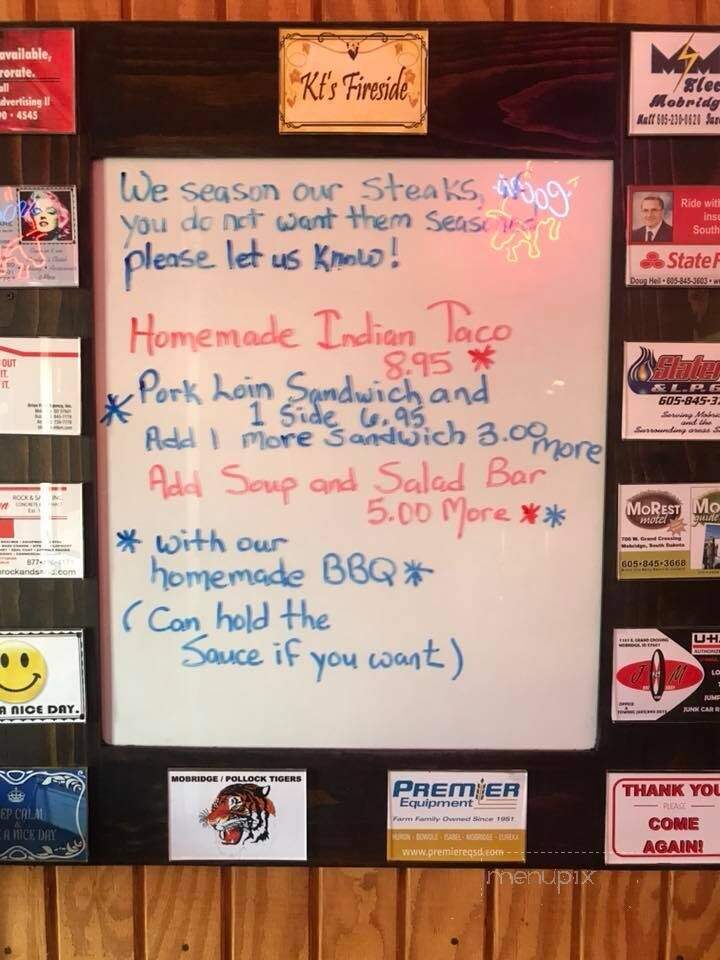 Kt's Fireside
We season our steaks,
you do not want them
please let us know!
Homemade Indian Taco
8.95 *
* Pork Loin Sandwich and
1 Side 6.95
Add 1 more Sandwich 3.00 more
Add Soup and Salad Bar
5.00 More **
* with our
homemade BBQ *
(Can hold the
Sauce if you want)
available,
rorate.
all
dvertising !!
0 • 4545
OUT
IT.
IT.
ROCK & SA
rockands
.com
A NICE DAY.
EP CALM
A NICE DAY
MOBRIDGE / POLLOCK TIGERS
PREMIER
Equipment
Farm Family Owned Since 1951
HURON - BOWDLE - ISABEL - MOBRIDGE - EUREKA
www.premiereqsd.com
M M
Elec
Mobridg
Matt 605-230-0620
Ride with
ins
South
StateF
Doug Heil • 605-845-3603 • w
Slater
& L.P. G
605-845-3
Serving Mobri
and the
Surrounding areas S
MoRest
motel
700 W. Grand Crossing
Mobridge, South Dakota
605•845•3668
Mo
guide
J M
U-H
AUTHORIZE
LO
JUMP
JUNK CAR R
THANK YOU
PLEASE
COME
AGAIN!
menupix